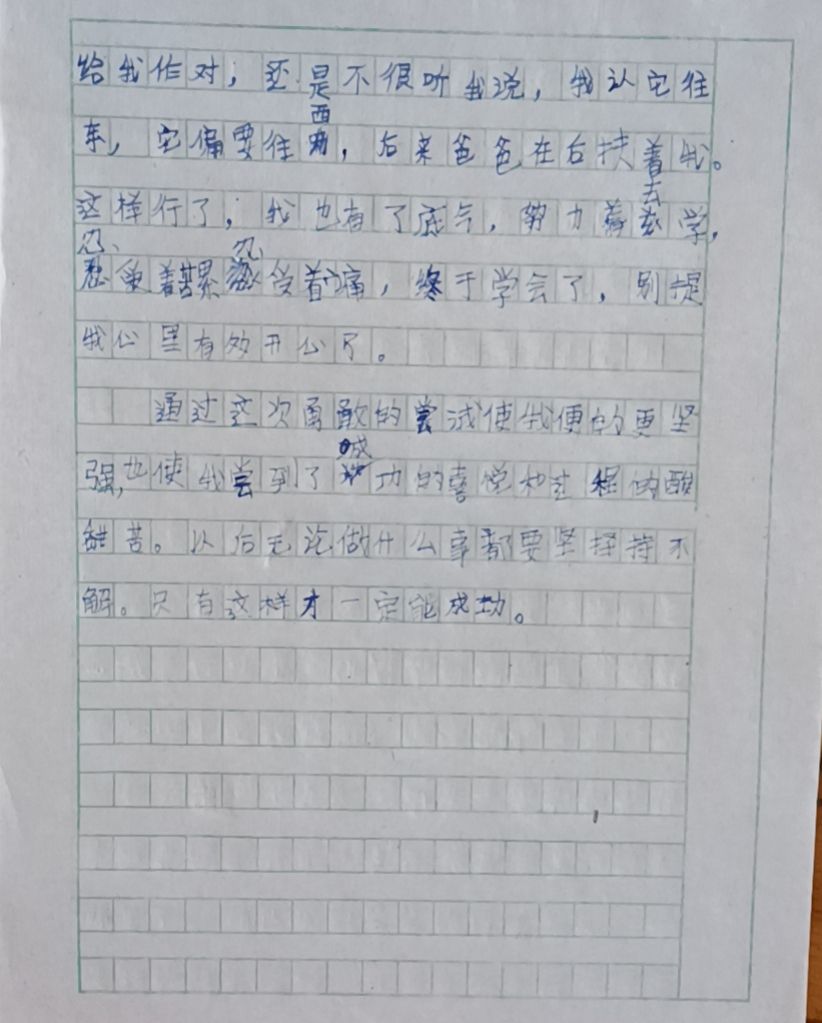 给我作对，还是不很听我说，我认它往
东，它偏要往西，后来爸爸在右扶着我。
这样行了，我也有了底气，努力着去学，
忍受着苦累忍受着痛，终于学会了，别提
我心里有多开心了。
通过这次勇敢的尝试使我便的更坚
强，也使我尝到了成功的喜悦和过程的酸
甜苦。以后无论做什么事都要坚持不
解。只有这样才一定能成功。